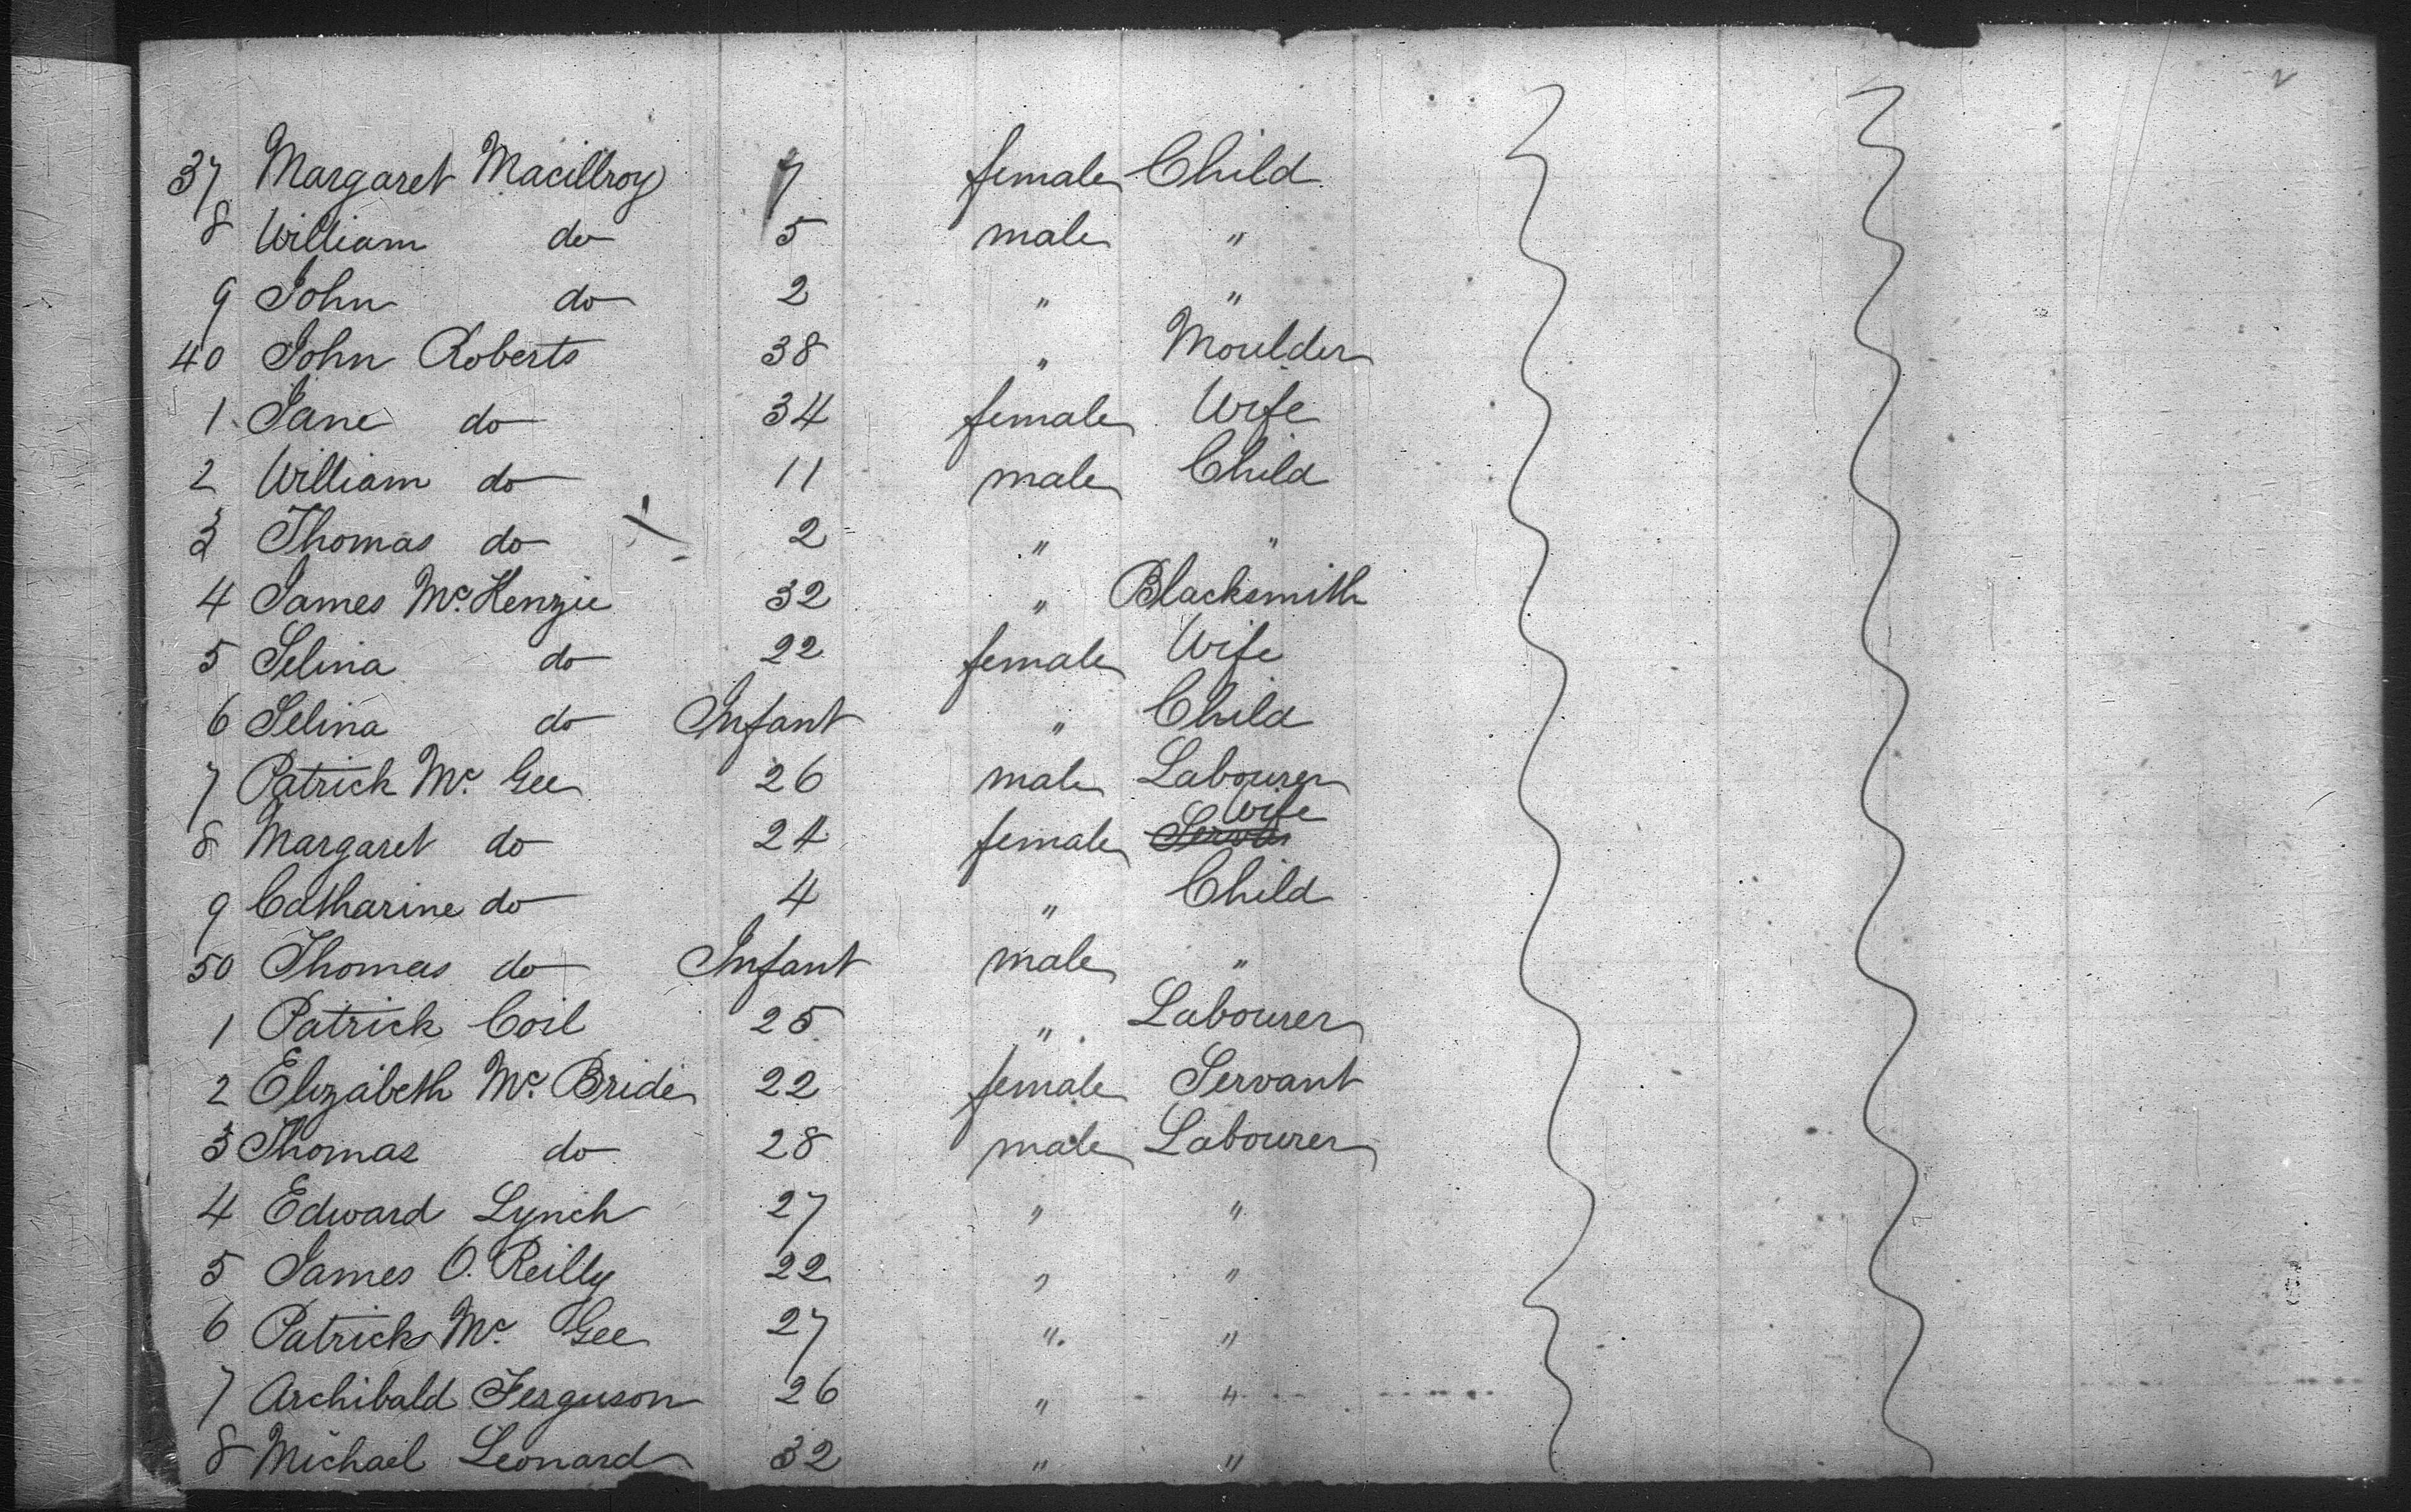 37 Margaret Macillroy 7 female Child
8 William do 5 male "
9 John do 2 " "
40 John Roberts 38 " Moulder
1 Jane do 34 female Wife
2 William do 11 male Child
3 Thomas do 2 " "
4 James Mc. Kenzie 32 " Blacksmith
5 Selina do 22 female Wife
6 Selina do Infant " Child
7 Patrick Mc. Gee 26 male Labourer
8 Margaret do 24 female Serva Wife
9 Catharine do 4 " Child
50 Thomas do Infant male "
1 Patrick Coil 25 " Labourer
2 Elizabeth Mc. Bride 22 female Servant
3 Thomas do 28 male Labourer
4 Edward Lynch 27 " "
5 James O. Reilly 22 " "
6 Patrick Mc. Gee 27 " "
7 Archibald Ferguson 26 " "
8 Michael Leonard 32 " "